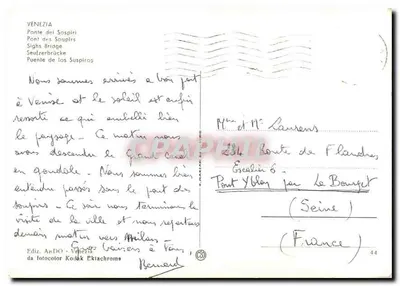 VENEZIA
Ponte dei Sospiri
Pont des Soupirs
Sighs Bridge
Seufzerbrücke
Puente de los Suspiros
Nous sommes arrivés a bon port
à Venise et le soleil est enfin
ressorti ce qui embellit bien
le paysage. Ce matin nous
avons descendu le Grand Canal
en gondole. Nous sommes bien
entendu passés sous le pont des
soupirs. Ce soir nous terminons la
visite de la ville et nous repartons
demain matin vers Milan.
Gros baisers à Tous,
Bernard
Mme et Mr Laurens
234 Route de Flandres
Escalier 6.
Pont Yblon par Le Bourget
(Seine)
(France)
Ediz. ArDO - Venezia
da fotocolor Kodak Ektachrome
CARTCRAPHILE